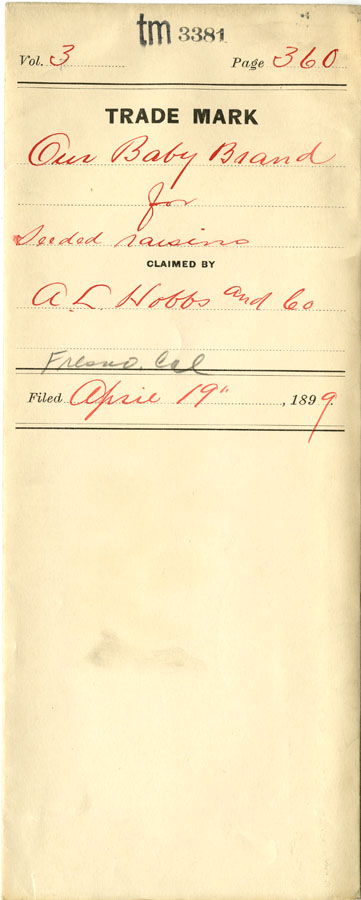 tm 3381
Vol. 3 Page 360
TRADE MARK
Our Baby Brand
for
Seeded raisins
CLAIMED BY
A. L. Hobbs and Co
Fresno. Cal
Filed April 19", 1899.